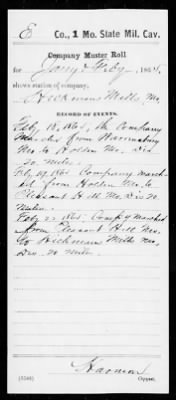 E Co., 1 Mo. State Mil. Cav.
Company Muster Roll
for Jany & Feby, 1864,
shows station of company,
Hickmans Mills Mo.
RECORD OF EVENTS.
Feb. 18, 1864, the Company
Marched from Warrensburg
Mo. to Holden Mo. Dis
20 miles.
Feb. 19, 1864 Company march-
ed from Holden Mo. to
Pleasant Hill Mo. Dis 20
Miles.
Feb 22 1864 Compy marched
from Pleasant Hill Mo.
to Hickmans Mills Mo,
Dis. 20 miles.
Harmon
Copyist.